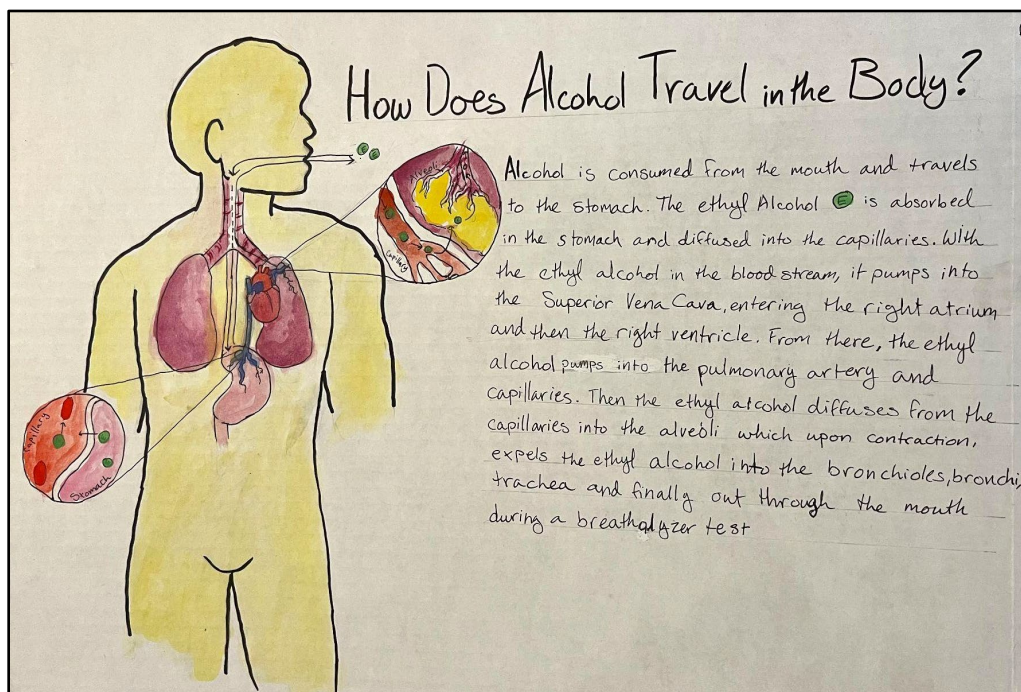 How Does Alcohol Travel in the Body?
Alcohol is consumed from the mouth and travels
to the stomach. The ethyl Alcohol E is absorbed
in the stomach and diffused into the capillaries. With
the ethyl alcohol in the blood stream, it pumps into
the Superior Vena Cava, entering the right atrium
and then the right ventricle. From there, the ethyl
alcohol pumps into the pulmonary artery and
capillaries. Then the ethyl alcohol diffuses from the
capillaries into the alveoli which upon contraction,
expels the ethyl alcohol into the bronchioles, bronchi,
trachea and finally out through the mouth
during a breathalyzer test
Alveoli
Capillary
Capillary
Stomach